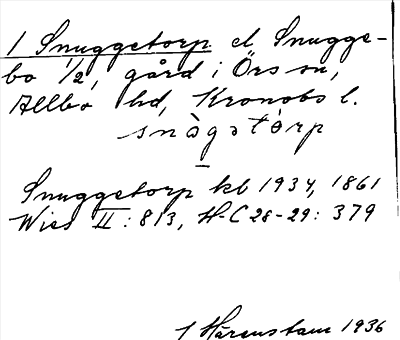 1 Snuggetorp el Snugge-
bo 1/2, gård i Örs sn,
Allbo hd, Kronobs l.
snùgətòrp
Snuggetorp kb 1934, 1861
Wies II: 813, H-C 28-29: 379
1 Hårenstam 1936